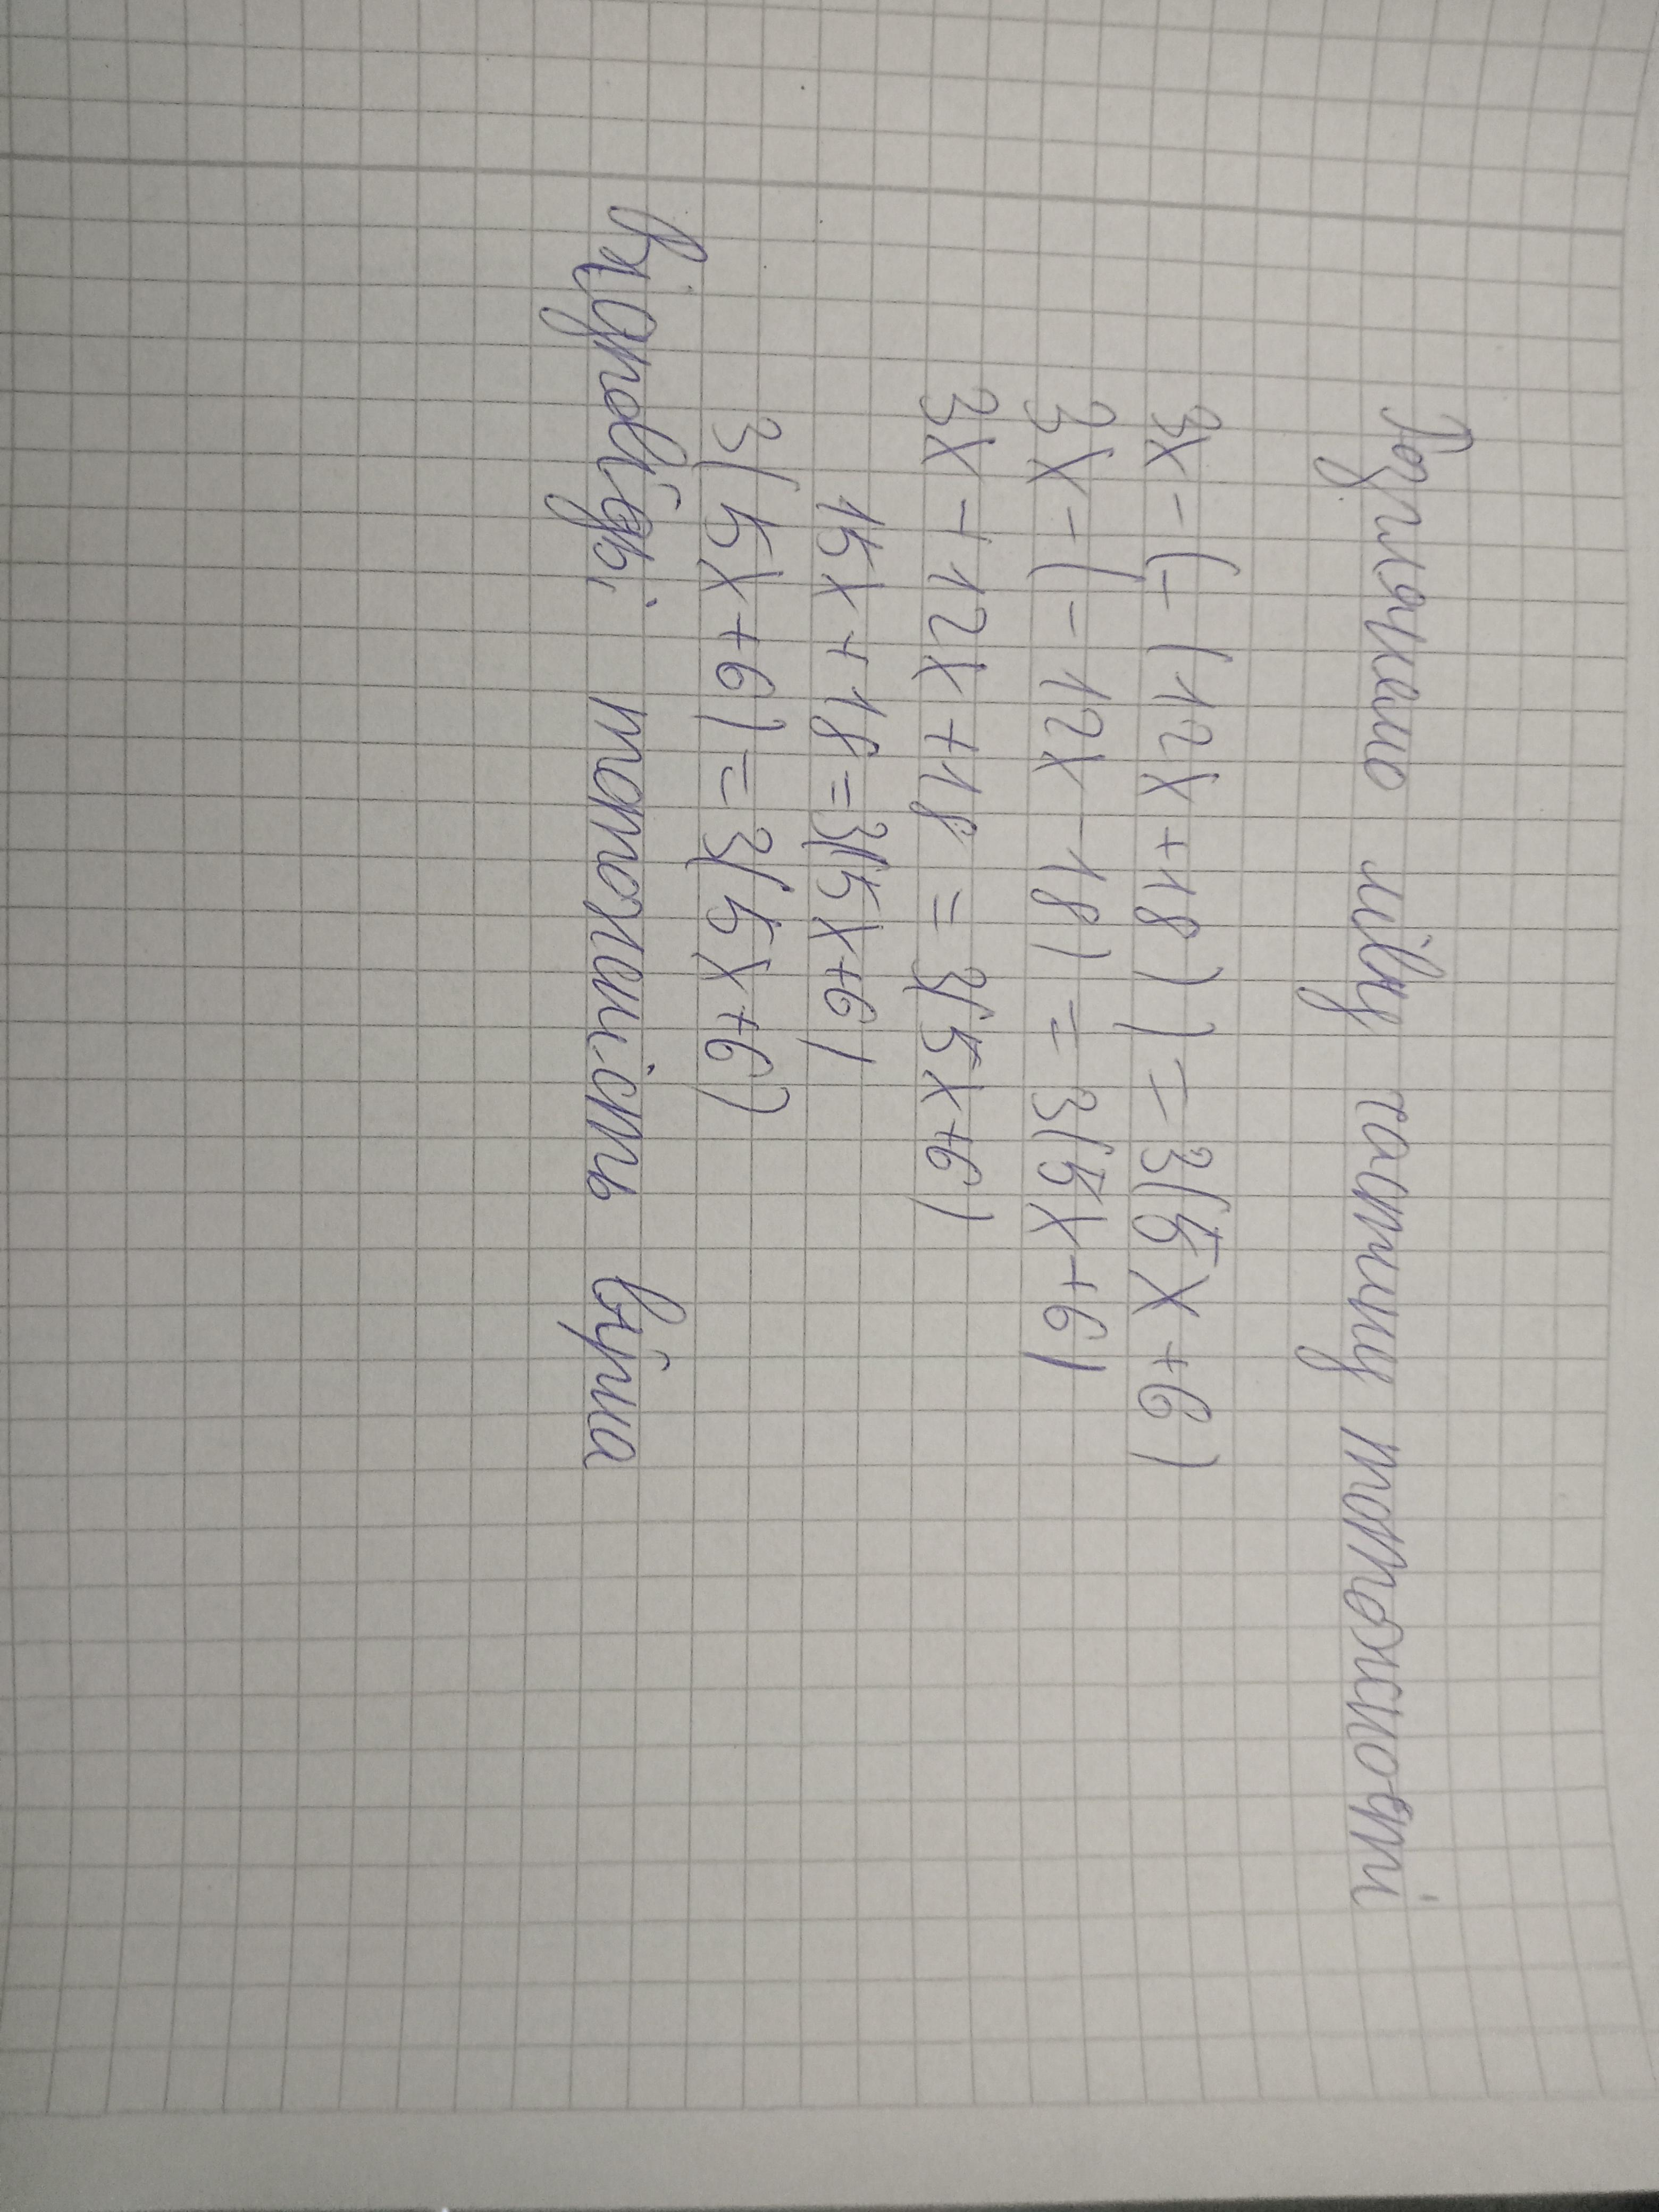 Розглянемо ліву частину тотожності
3x - (- (12x + 18)) = 3(5x + 6)
3x - (- 12x - 18) = 3(5x + 6)
3x + 12x + 18 = 3(5x + 6)
15x + 18 = 3(5x + 6)
3(5x + 6) = 3(5x + 6)
Відповідь: тотожність вірна